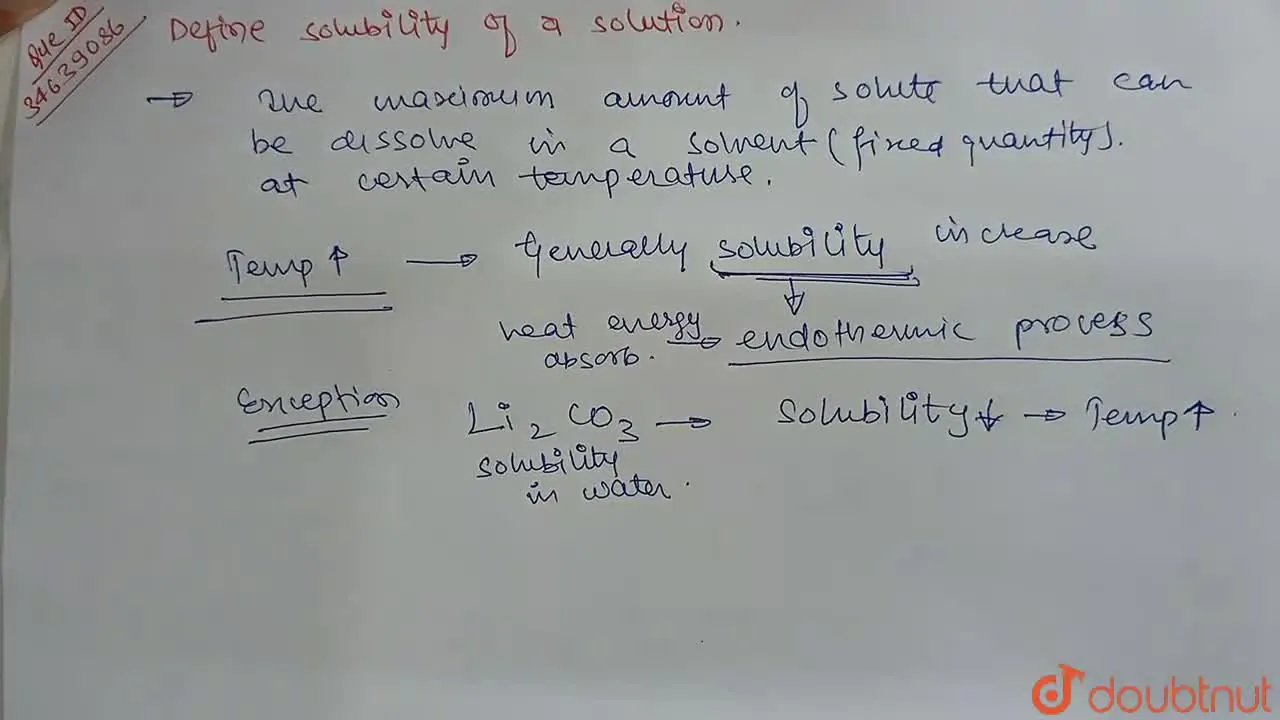 Que ID
34639086
Define solubility of a solution.
→ The maximum amount of solute that can
be dissolve in a solvent (fixed quantity).
at certain temperature.
Temp ↑ → Generally solubility increase
↓
heat energy → endothermic process
absorb.
Exception
Li2CO3 → Solubility ↓ → Temp ↑.
solubility
in water.
doubtnut